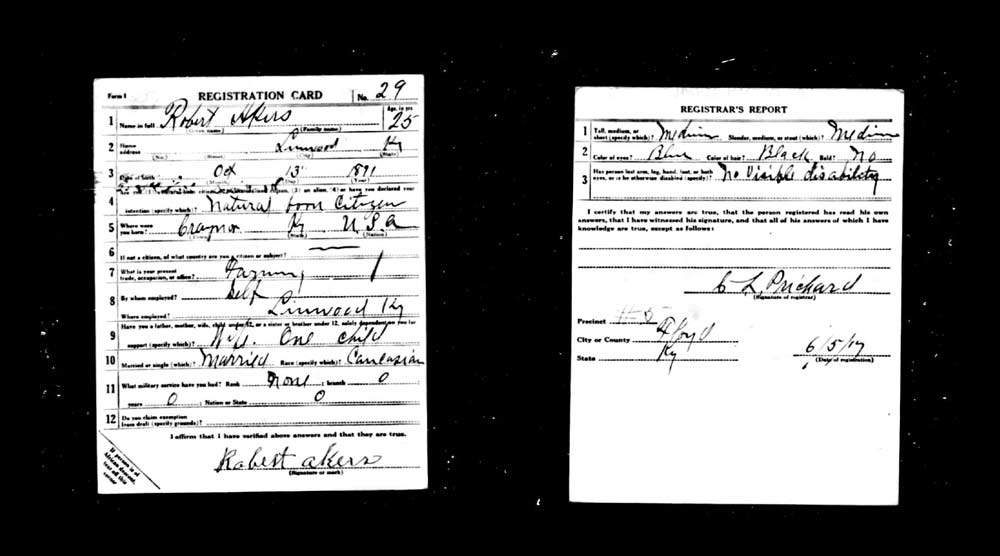 Form 1 REGISTRATION CARD No. 29
1 Name in full Robert Akers Age, in yrs 25
(Given name) (Family name)
2 Home address Linwood Ky
(No.) (Street) (City) (State)
3 Date of birth Oct 13 1891
(Month) (Day) (Year)
Are you citizen, (3) an alien, (4) or have you declared your
intention (specify which)? Natural born Citizen
5 Where were you born? Craynor Ky U.S.A
(State) (Nation)
6 If not a citizen, of what country are you a citizen or subject?
7 What is your present trade, occupation, or office? Farming 1
8 By whom employed? Self
Where employed? Linwood Ky
9 Have you a father, mother, wife, child under 12, or a sister or brother under 12, solely dependent on you for
support (specify which)? Wife. One child
10 Married or single (which)? Married Race (specify which)? Caucasian
11 What military service have you had? Rank None ; branch 0
years 0 ; Nation or State 0
12 Do you claim exemption from draft (specify grounds)?
I affirm that I have verified above answers and that they are true.
Robert Akers
(Signature or mark)
If person is of African descent, tear off this corner
REGISTRAR'S REPORT
1 Tall, medium, or short (specify which)? Medium Slender, medium, or stout (which)? Medium
2 Color of eyes? Blue Color of hair? Black Bald? No
3 Has person lost arm, leg, hand, foot, or both eyes, or is he otherwise disabled (specify)? No Visible disability
I certify that my answers are true, that the person registered has read his own
answers, that I have witnessed his signature, and that all of his answers of which I have
knowledge are true, except as follows:
C L Prichard
(Signature of registrar)
Precinct #5
City or County Floyd
State Ky 6/5/17
(Date of registration)